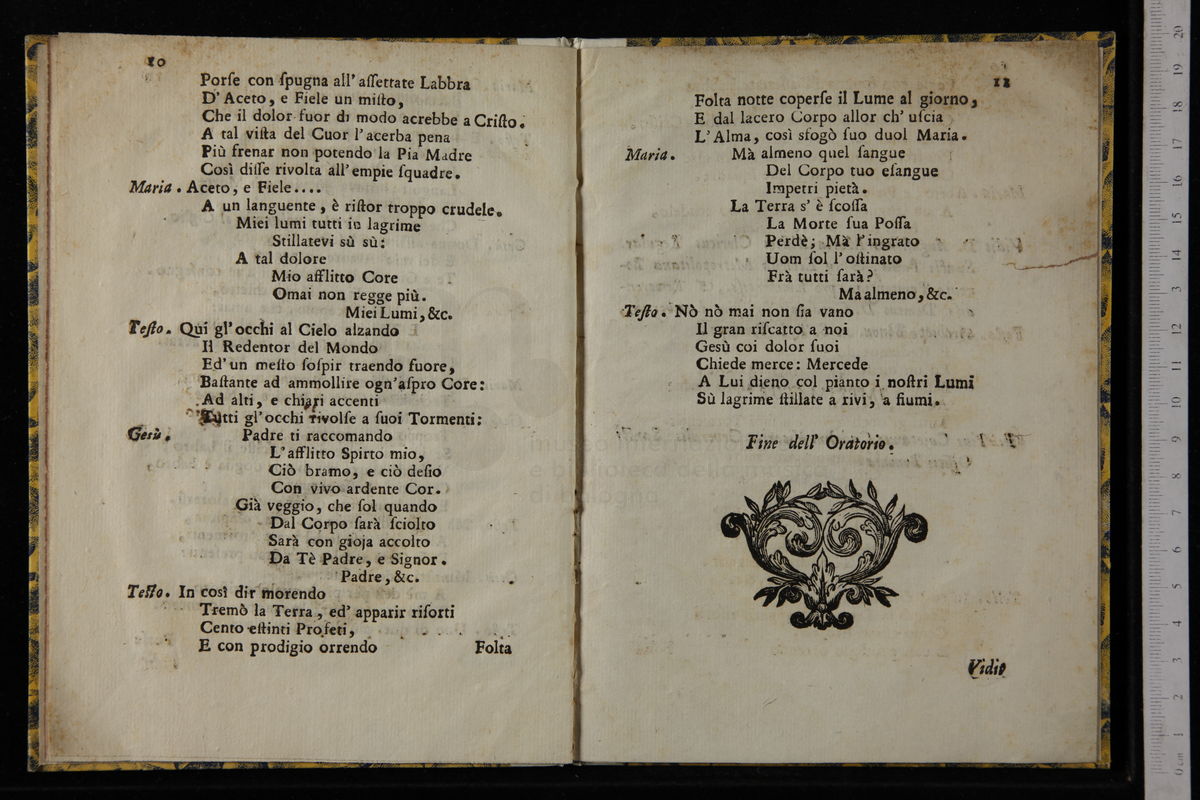 10
Porſe con ſpugna all' aſſettate Labbra
D' Aceto, e Fiele un miſto,
Che il dolor fuor di modo acrebbe a Criſto.
A tal viſta del Cuor l' acerba pena
Più frenar non potendo la Pia Madre
Così diſſe rivolta all' empie ſquadre.
Maria. Aceto, e Fiele....
A un languente, è riſtor troppo crudele.
Miei lumi tutti in lagrime
Stillatevi sù sù:
A tal dolore
Mio afflitto Core
Omai non regge più.
Miei Lumi, &c.
Teſto. Qui gl' occhi al Cielo alzando
Il Redentor del Mondo
Ed' un meſto ſoſpir traendo fuore,
Baſtante ad ammollire ogn' aſpro Core:
Ad alti, e chiari accenti
Tutti gl' occhi rivolſe a ſuoi Tormenti:
Gesù. Padre ti raccomando
L' afflitto Spirto mio,
Ciò bramo, e ciò deſio
Con vivo ardente Cor.
Già veggio, che ſol quando
Dal Corpo ſarà ſciolto
Sarà con gioja accolto
Da Tè Padre, e Signor.
Padre, &c.
Teſto. In così dir morendo
Tremò la Terra, ed' apparir riſorti
Cento eſtinti Profeti,
E con prodigio orrendo
Folta
11
Folta notte coperſe il Lume al giorno,
E dal lacero Corpo allor ch' uſcia
L' Alma, così sfogò ſuo duol Maria.
Maria. Mà almeno quel ſangue
Del Corpo tuo eſangue
Impetri pietà.
La Terra s' è ſcoſſa
La Morte ſua Poſſa
Perdè; Mà l' ingrato
Uom ſol l' oſtinato
Frà tutti ſarà?
Ma almeno, &c.
Teſto. Nò nò mai non ſia vano
Il gran riſcatto a noi
Gesù coi dolor ſuoi
Chiede merce: Mercede
A Lui dieno col pianto i noſtri Lumi
Sù lagrime ſtillate a rivi, a fiumi.
Fine dell' Oratorio.
Vidit